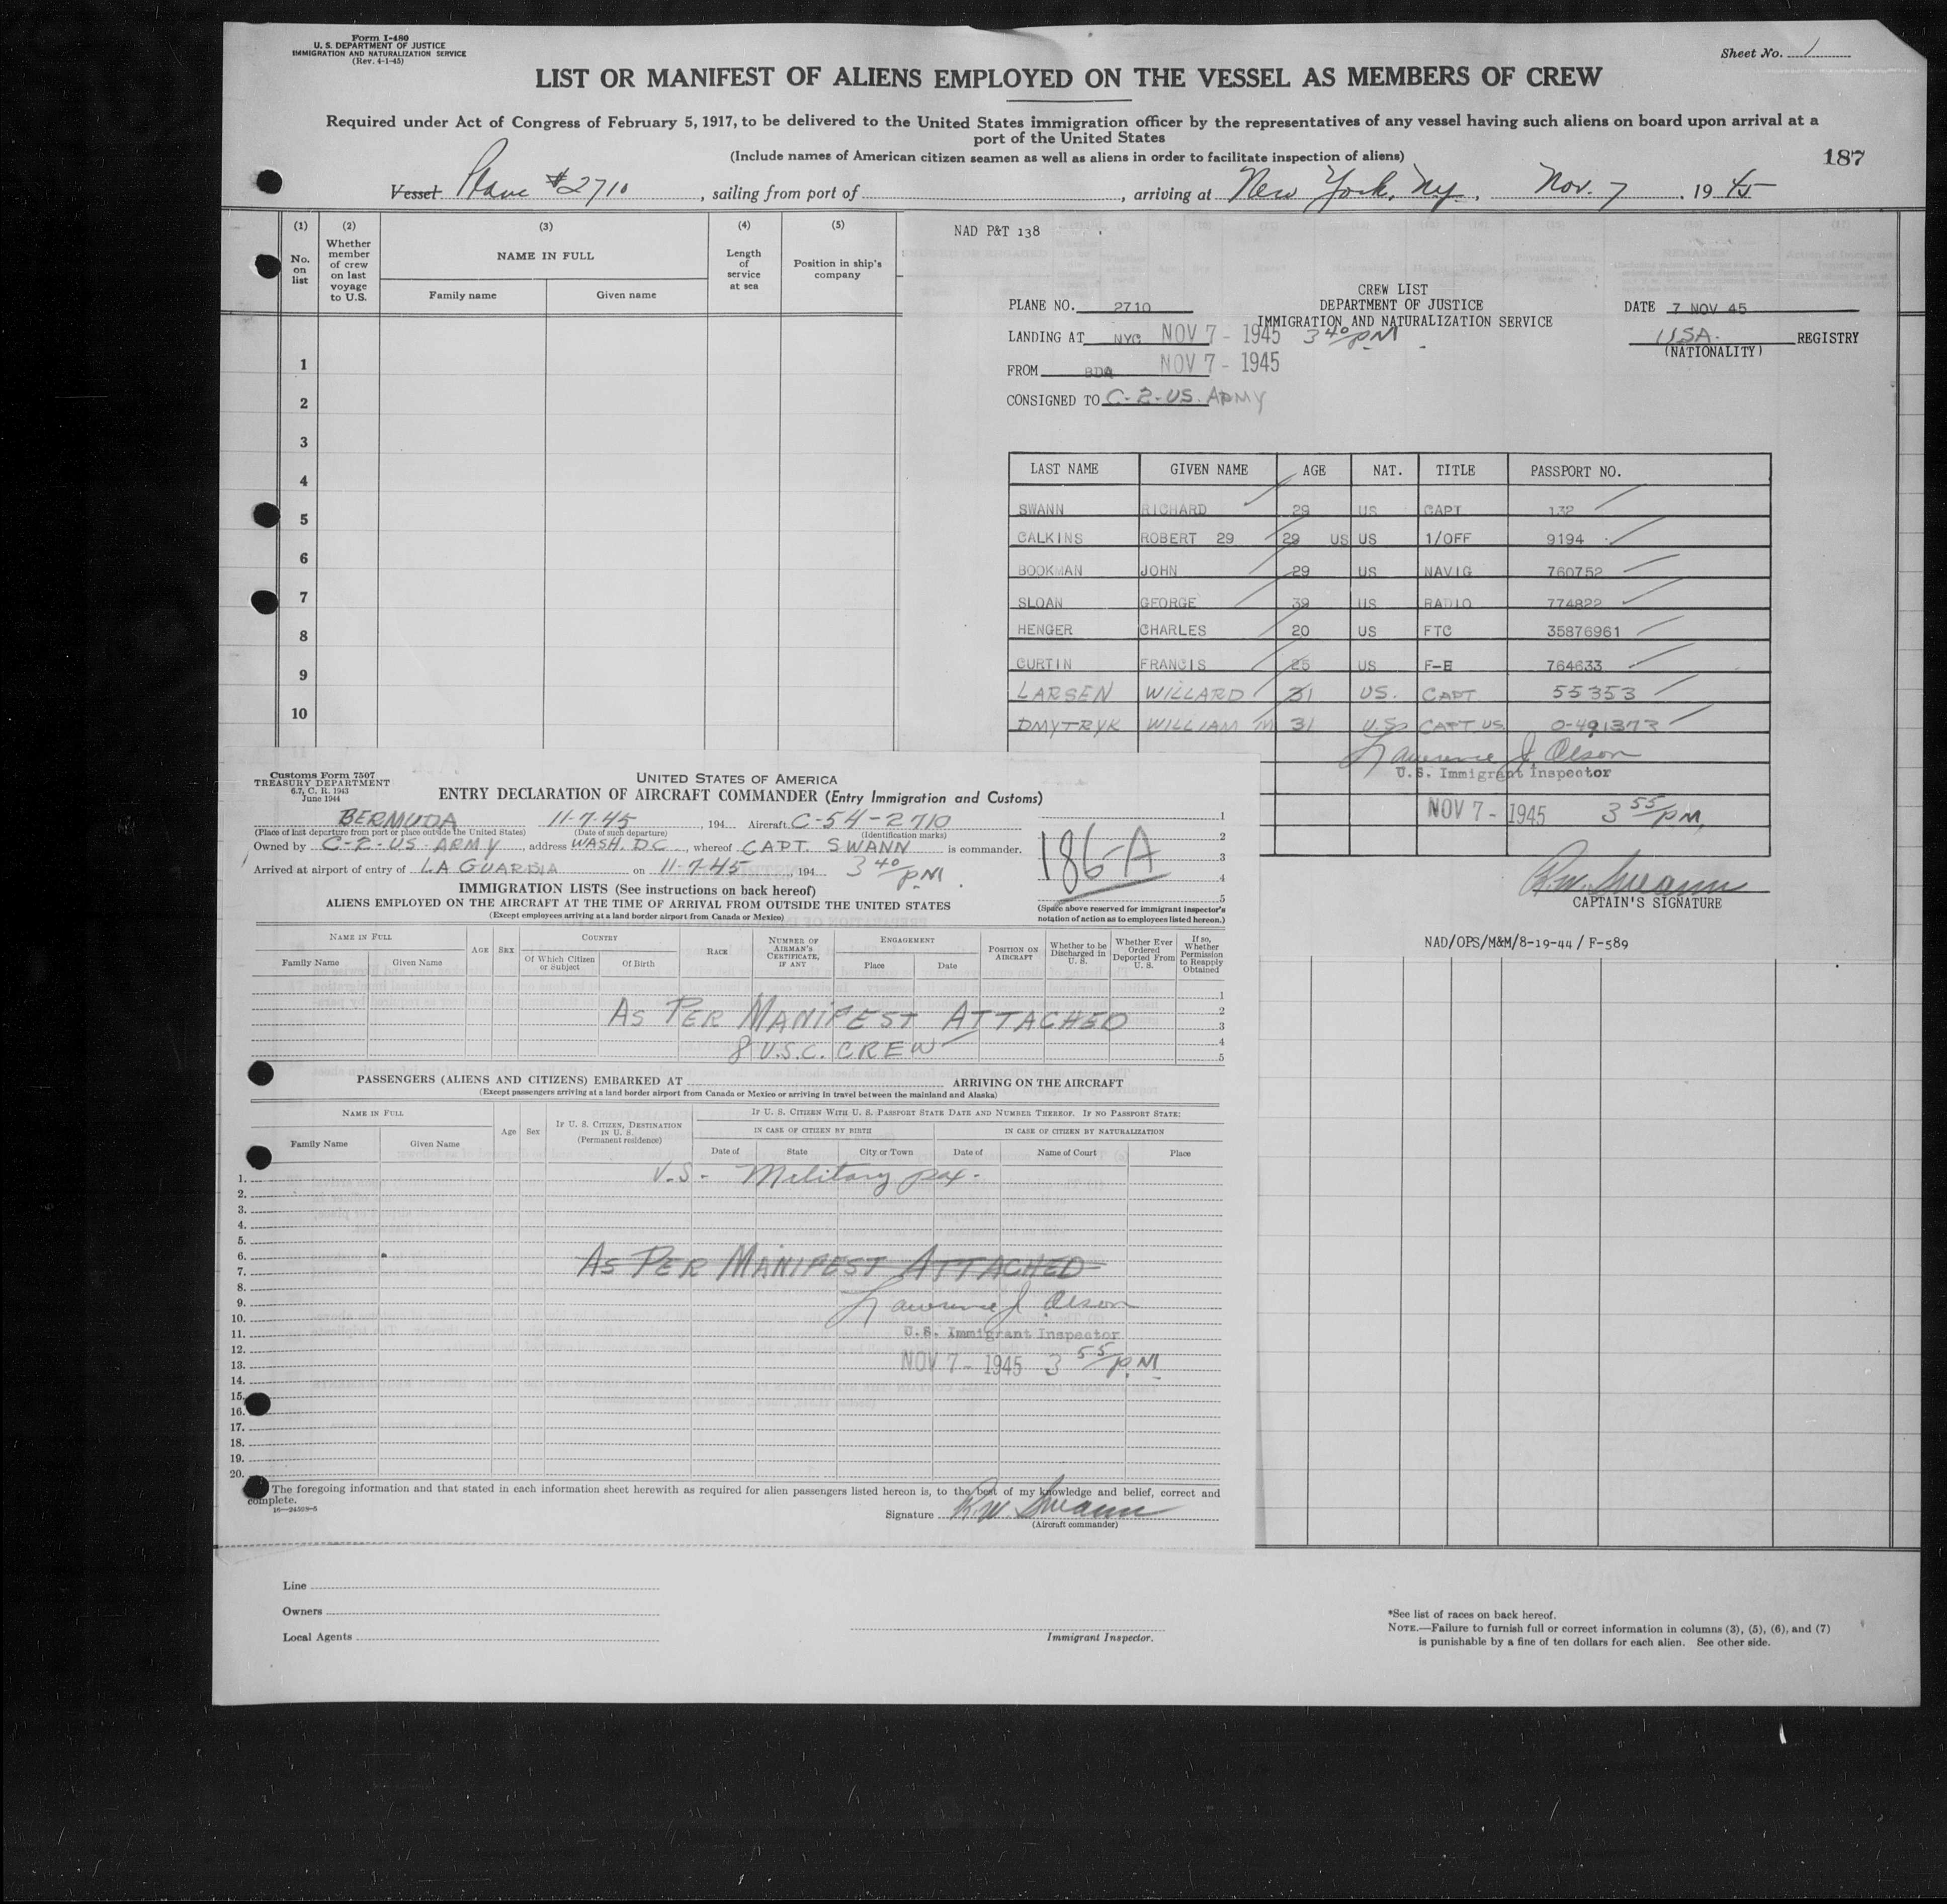 Form I-480
U. S. DEPARTMENT OF JUSTICE
IMMIGRATION AND NATURALIZATION SERVICE
(Rev. 4-1-45)
Sheet No. 1
LIST OR MANIFEST OF ALIENS EMPLOYED ON THE VESSEL AS MEMBERS OF CREW
Required under Act of Congress of February 5, 1917, to be delivered to the United States immigration officer by the representatives of any vessel having such aliens on board upon arrival at a
port of the United States
(Include names of American citizen seamen as well as aliens in order to facilitate inspection of aliens)
187
Vessel Plane #2710, sailing from port of, arriving at New York, Ny., Nov. 7, 1945
(1) (2) (3) (4) (5)
No. on list
Whether member of crew on last voyage to U.S.
NAME IN FULL
Family name Given name
Length of service at sea
Position in ship's company
1
2
3
4
5
6
7
8
9
10
NAD P&T 138
CREW LIST
PLANE NO. 2710 DEPARTMENT OF JUSTICE DATE 7 NOV 45
IMMIGRATION AND NATURALIZATION SERVICE
LANDING AT NYC NOV 7 - 1945 3 40/PM USA. REGISTRY
(NATIONALITY)
FROM BDA NOV 7 - 1945
CONSIGNED TO C-2-US. ARMY
LAST NAME GIVEN NAME AGE NAT. TITLE PASSPORT NO.
SWANN RICHARD 29 US CAPT 132
CALKINS ROBERT 29 29 US US 1/OFF 9194
BOOKMAN JOHN 29 US NAVIG 760752
SLOAN GEORGE 39 US RADIO 774822
HENGER CHARLES 20 US FTC 35876961
CURTIN FRANCIS 25 US F-E 764633
LARSEN WILLARD 31 US. CAPT 55353
DMYTRYK WILLIAM M 31 US CAPT US 0-491373
Lawrence J Olson
U.S. Immigrant Inspector
NOV 7 - 1945 3 55/PM,
R.W. Swann
CAPTAIN'S SIGNATURE
NAD/OPS/M&M/8-19-44 / F-589
Customs Form 7507
TREASURY DEPARTMENT
6.7, C. R. 1943
June 1944
UNITED STATES OF AMERICA
ENTRY DECLARATION OF AIRCRAFT COMMANDER (Entry Immigration and Customs)
BERMUDA 11-7-45, 194 Aircraft C-54-2710
(Place of last departure from port or place outside the United States) (Date of such departure) (Identification marks)
Owned by C-2-US ARMY, address WASH. DC, whereof CAPT. SWANN is commander.
Arrived at airport of entry of LA GUARDIA on 11-7-45, 194 3 40/PM.
1
2
3
4
5
186-A
(Space above reserved for immigrant Inspector's notation of action as to employees listed hereon.)
IMMIGRATION LISTS (See instructions on back hereof)
ALIENS EMPLOYED ON THE AIRCRAFT AT THE TIME OF ARRIVAL FROM OUTSIDE THE UNITED STATES
(Except employees arriving at a land border airport from Canada or Mexico)
NAME IN FULL
Family Name Given Name
AGE SEX
COUNTRY
Of Which Citizen or Subject Of Birth
RACE
NUMBER OF AIRMAN'S CERTIFICATE, IF ANY
ENGAGEMENT
Place Date
POSITION ON AIRCRAFT
Whether to be Discharged in U. S.
Whether Ever Ordered Deported From U. S.
If so, Whether Permission to Reapply Obtained
1
2
3
4
5
AS PER MANIFEST ATTACHED
8 U.S.C. CREW
PASSENGERS (ALIENS AND CITIZENS) EMBARKED AT ARRIVING ON THE AIRCRAFT
(Except passengers arriving at a land border airport from Canada or Mexico or arriving in travel between the mainland and Alaska)
NAME IN FULL
Family Name Given Name
Age Sex
IF U. S. CITIZEN, DESTINATION IN U. S. (Permanent residence)
IF U. S. CITIZEN WITH U. S. PASSPORT STATE DATE AND NUMBER THEREOF. IF NO PASSPORT STATE:
IN CASE OF CITIZEN BY BIRTH IN CASE OF CITIZEN BY NATURALIZATION
Date of State City or Town Date of Name of Court Place
U.S- Military pax-
1.
2.
3.
4.
5.
6.
7.
8.
9.
10.
11.
12.
13.
14.
15.
16.
17.
18.
19.
20.
AS PER MANIFEST ATTACHED
Lawrence J Olson
U.S. Immigrant Inspector
NOV 7 - 1945 3 55/PM
The foregoing information and that stated in each information sheet herewith as required for alien passengers listed hereon is, to the best of my knowledge and belief, correct and
complete.
16—24508-5
Signature R.W. Swann
(Aircraft commander)
Line
Owners
Local Agents
Immigrant Inspector.
*See list of races on back hereof.
NOTE.—Failure to furnish full or correct information in columns (3), (5), (6), and (7)
is punishable by a fine of ten dollars for each alien. See other side.